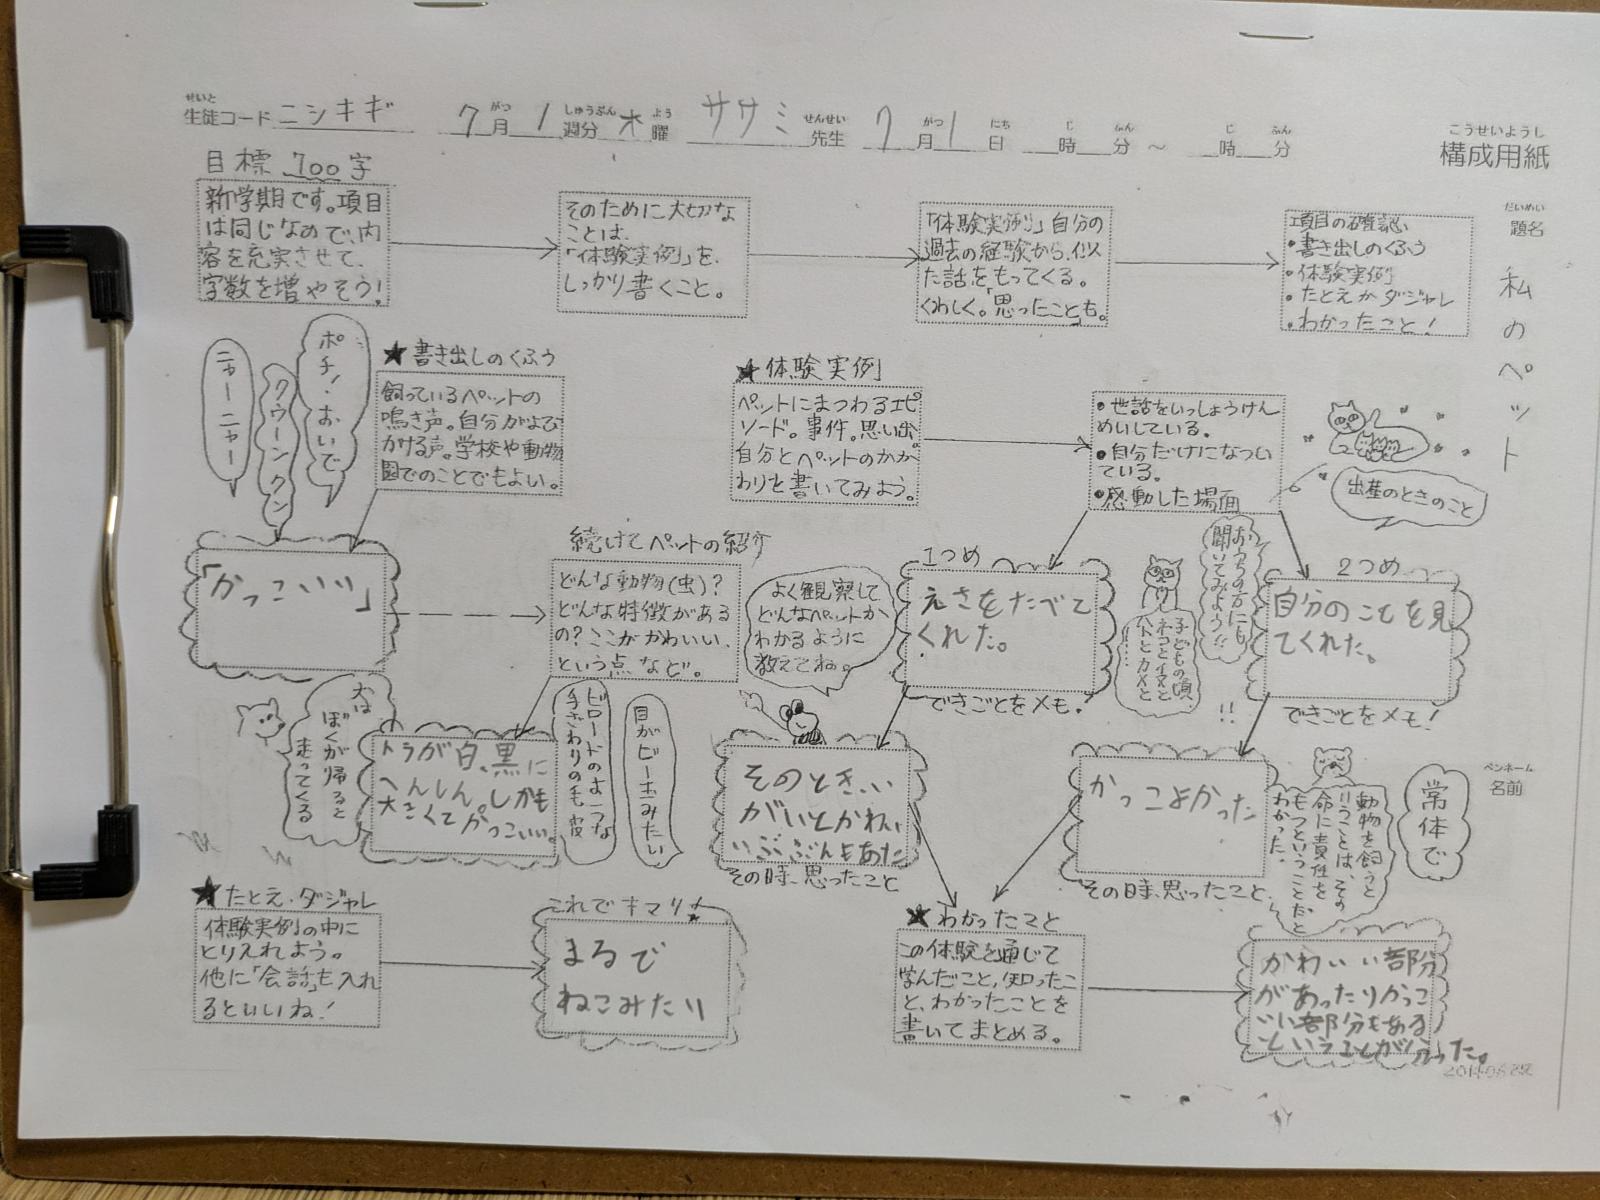 せいと
生徒コード ニシキギ 7月 1週分 木曜 ササミ先生 7月1日 時 分 〜 時 分
がつ しゅうぶん よう せんせい がつ にち じ ふん じ ふん
こうせいようし
構成用紙
だいめい
題名
私のペット
ペンネーム
名前
目標 700字
新学期です。項目
は同じなので、内
容を充実させて、
字数を増やそう!
そのために大切な
ことは、
「体験実例」を、
しっかり書くこと。
「体験実例」自分の
過去の経験から、似
た話をもってくる。
くわしく。「思ったこと」も。
項目の確認
・書き出しのくふう
・体験実例
・たとえかダジャレ
・わかったこと!
ニャーニャー
クゥーンクン
ポチ!おいで
★書き出しのくふう
飼っているペットの
鳴き声。自分がよび
かける声。学校や動物
園でのことでもよい。
「かっこいい」
続けてペットの紹介
どんな動物(虫)?
どんな特徴がある
の?ここがかわいい、
という点など。
よく観察して
どんなペットか
わかるように
教えてね。
犬は
ぼくが帰ると
走ってくる
トラが白、黒に
へんしん。しかも
大きくてかっこいい。
ビロードのような
手ざわりの毛皮
目がビー玉みたい
★体験実例
ペットにまつわるエピ
ソード。事件。思い出。
自分とペットのかか
わりを書いてみよう。
・世話をいっしょうけん
めいしている。
・自分だけになつい
ている。
・感動した場面
出産のときのこと
1つめ
えさをたべて
くれた。
できごとをメモ!
おうちの方にも
聞いてみよう!!
子どもの頃、
ネコとイヌと
ハトとカメと
……
!!
2つめ
自分のことを見
てくれた。
できごとをメモ!
そのとき、い
がいとかわい
いぶぶんもあた
その時、思ったこと
かっこよかった
その時、思ったこと
動物を飼うと
いうことは、その
命に責任を
もつということだと
わかった。
常体で
★たとえ・ダジャレ
体験実例の中に
とりいれよう。
他に「会話」も入れ
るといいね!
これでキマリ!
まるで
ねこみたい
★わかったこと
この体験を通じて
学んだこと、知ったこ
と、わかったことを
書いてまとめる。
かわいい部分
があったりかっこ
いい部分もある
ということが分った。